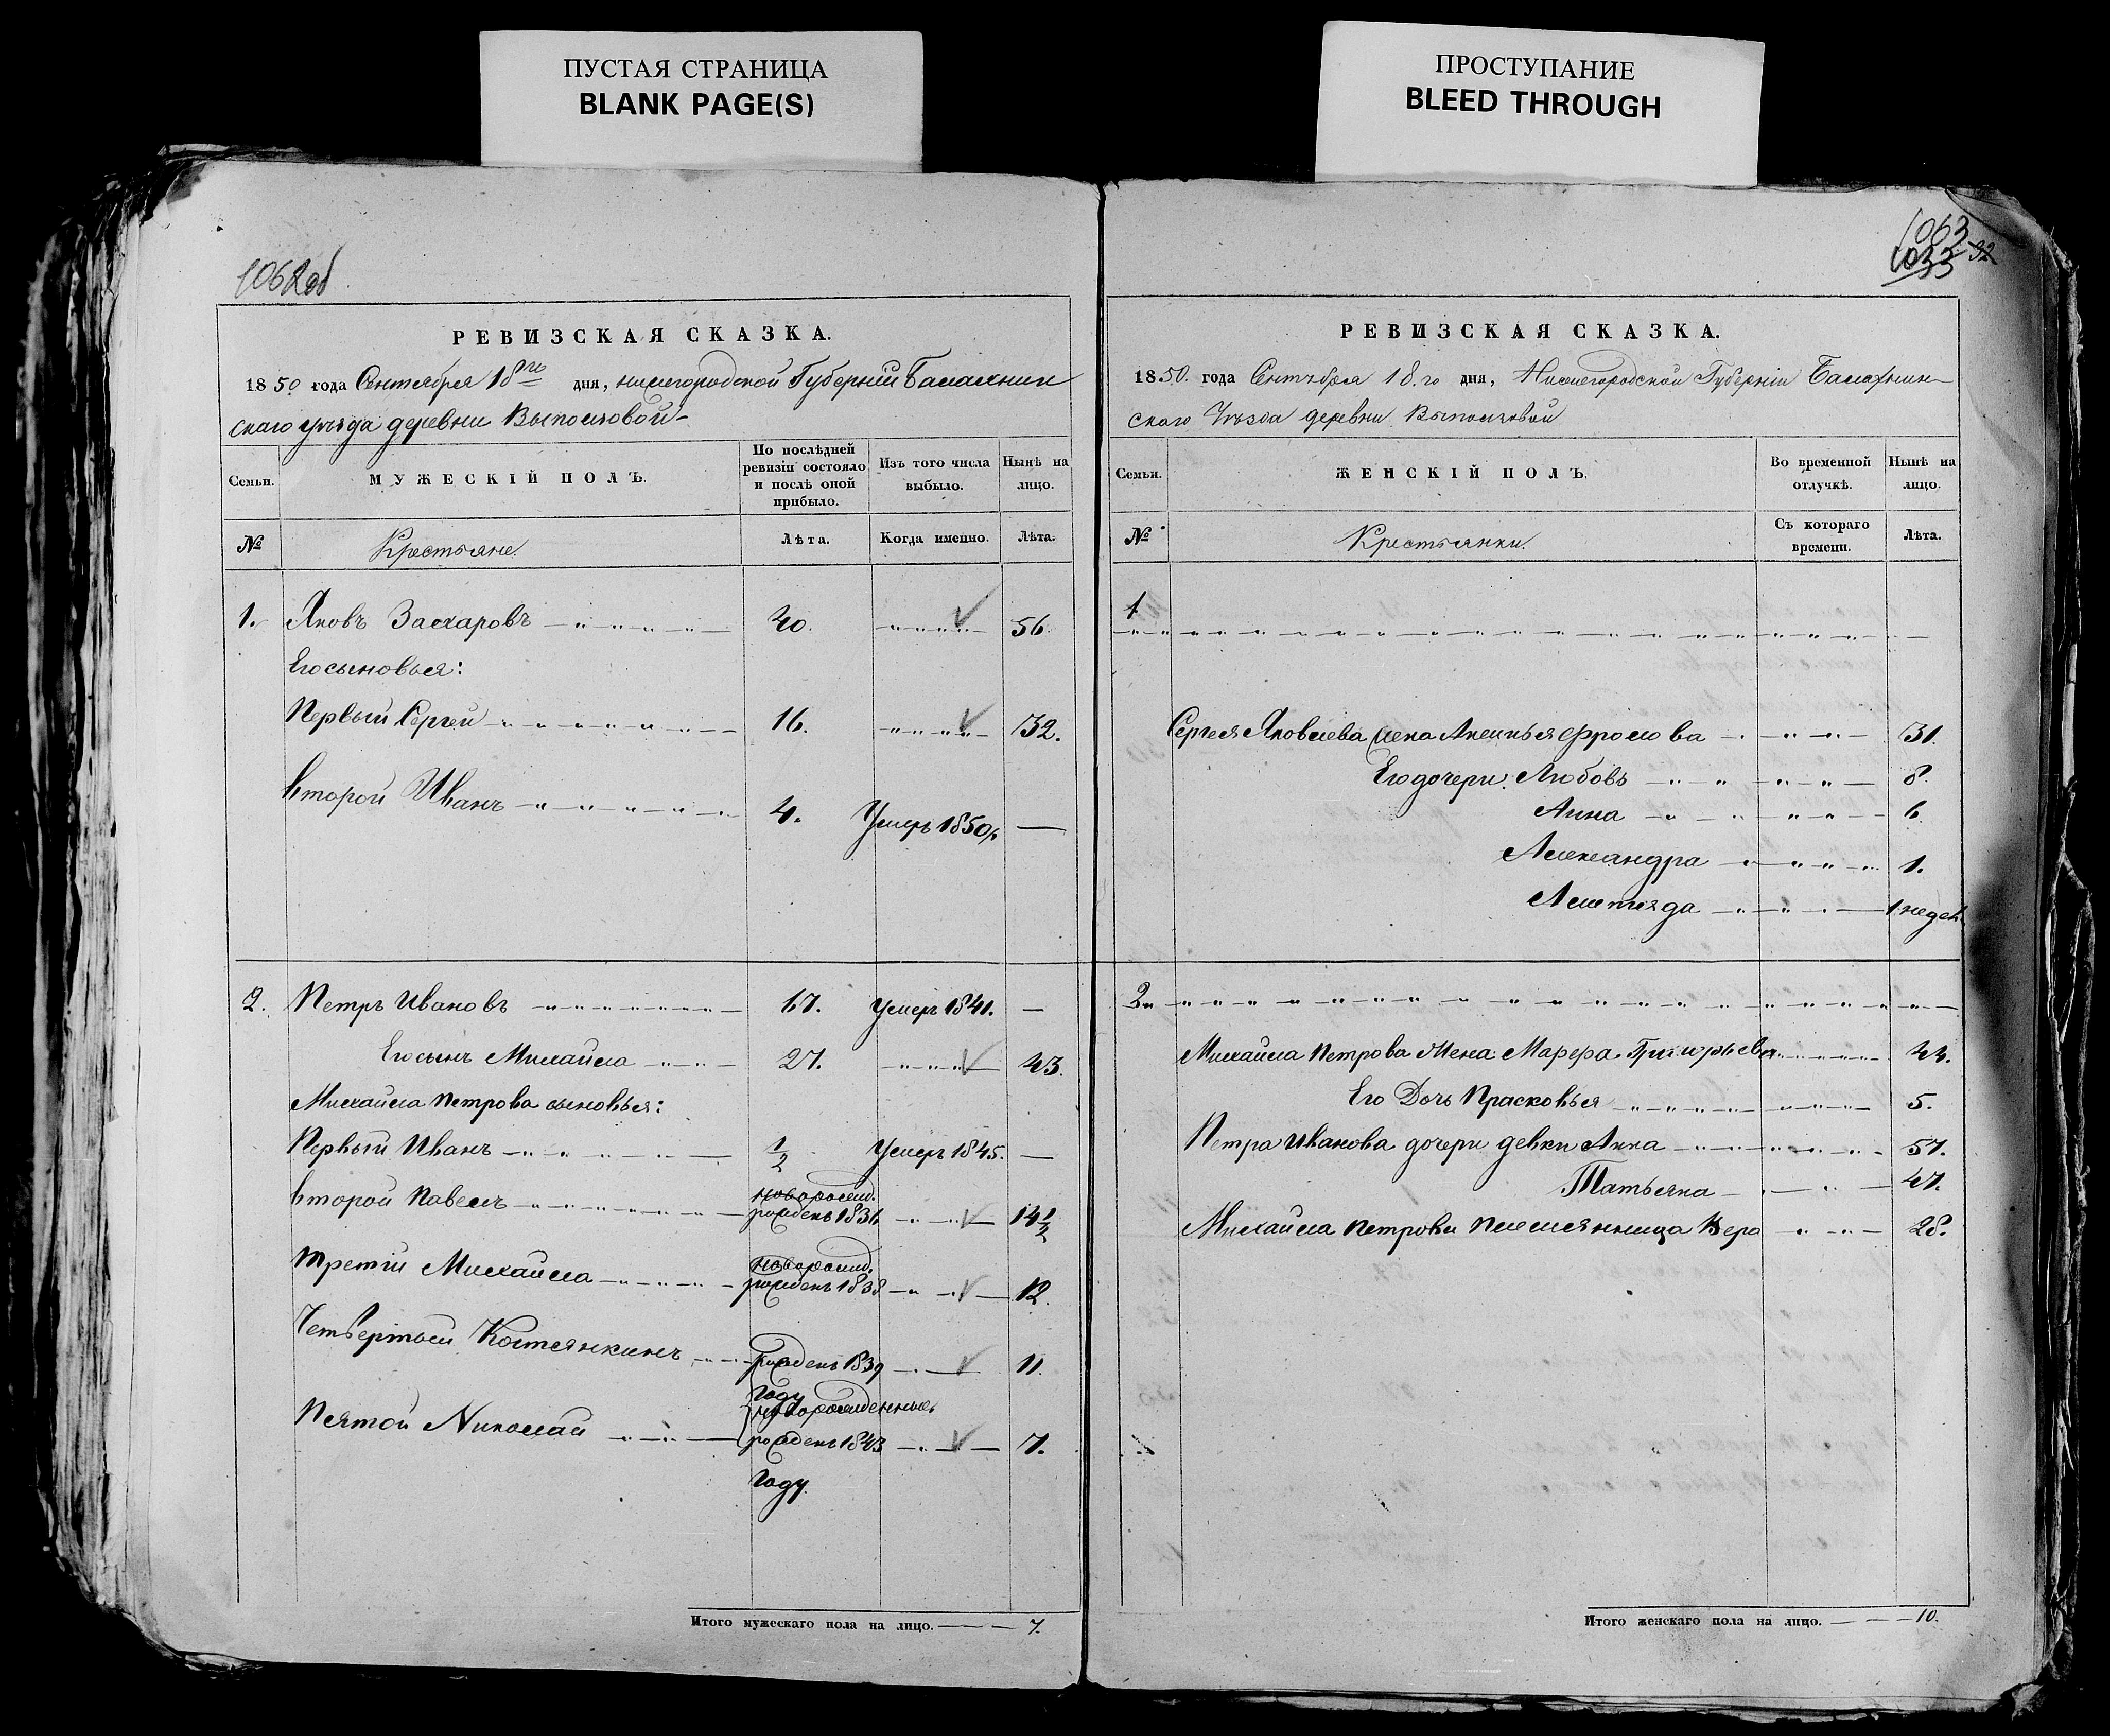 ПУСТАЯ СТРАНИЦА
BLANK PAGE(S)
ПРОСТУПАНИЕ
BLEED THROUGH
1062об
РЕВИЗСКАЯ СКАЗКА.
1850 года Сентября 18го дня, нижегородской Губерніи Балахнин
скаго уѣзда деревни Выползовой
Семьи. МУЖЕСКІЙ ПОЛЪ. По послѣдней ревизіи состояло и послѣ оной прибыло. Изъ того числа выбыло. Нынѣ на лицо.
№ Крестьяне. Лѣта. Когда именно. Лѣта.
1. Яковъ Захаровъ 40. 56.
Его сыновья:
Первый Сергей 16. 32.
Второй Иванъ 4. Умеръ 1850 —
2. Петръ Ивановъ 67. Умеръ 1841. —
Его сынъ Михайла 27. 43.
Михайла Петрова сыновья:
Первый Иванъ 1/2 Умеръ 1845. —
новорожд.
Второй Павелъ рожденъ 1836 14 1/2
новорожд.
Третій Михайла рожденъ 1838 12.
Четвертый Костянкинъ рожденъ 1839 11.
году
новорожденные
Пятой Николай рожденъ 1843 7.
году.
Итого мужескаго пола на лицо. 7.
1063
1033 32
РЕВИЗСКАЯ СКАЗКА.
1850. года Сентября 18.го дня, Нижегородской Губерніи Балахнин
скаго Уѣзда деревни Выползовой
Семьи. ЖЕНСКІЙ ПОЛЪ. Во временной отлучкѣ. Нынѣ на лицо.
№ Крестьянки. Съ котораго времени. Лѣта.
1
Сергея Яковлева жена Акулинья Фролова 31.
Его дочери: Любовь 8.
Анна 6
Александра 1.
1 недел
2
Михайла Петрова Жена Марфа Григорьева 44.
Его Дочь Прасковья 5.
Петра Иванова дочери девки Анна 57.
Татьяна 47.
Михайла Петрова племянница Вера 28.
Итого женскаго пола на лицо. 10.